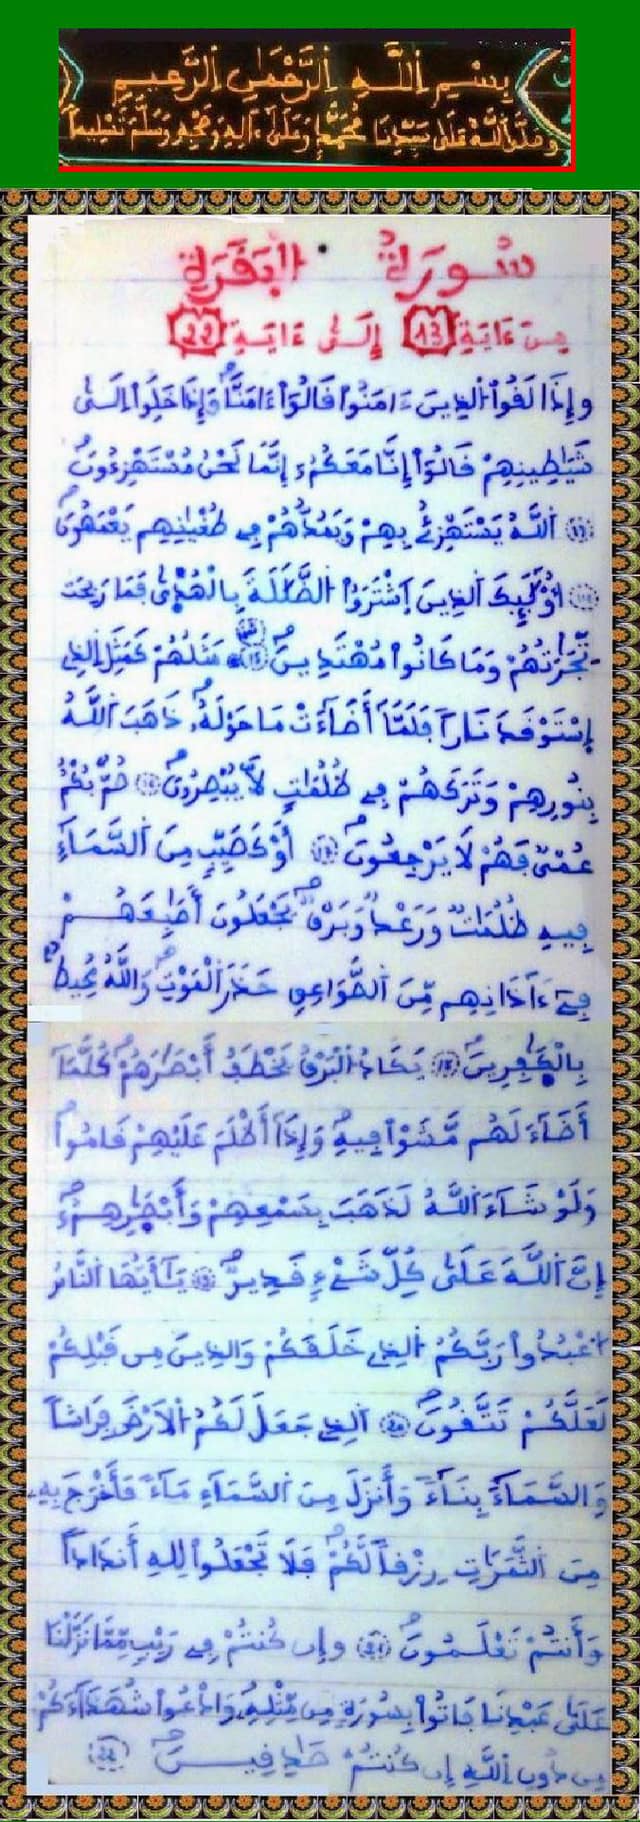 بِسْمِ اِللَّهِ اِلرَّحْمَٰنِ اِلرَّحِيمِ
وَصَلَّى اَللَّهُ عَلَىٰ سَيِّدِنَا مُحَمَّدٍ وَعَلَىٰ ءَالِهِ وَصَحْبِهِ وَسَلَّمَ تَسْلِيماً
سُورَةُ اُلْبَقَرَةِ
مِنَ ءَايَةِ 13 إِلَىٰ ءَايَةِ 22
وَإِذَا لَقُواْ اُلذِينَ ءَامَنُواْ قَالُوٓاْ ءَامَنَّا وَإِذَا خَلَوِاْ اِلَىٰ
شَيَٰطِينِهِمْ قَالُوٓاْ إِنَّا مَعَكُمُۥٓ إِنَّمَا نَحْنُ مُسْتَهْزِءُونَ
اَللَّهُ يَسْتَهْزِئُ بِهِمْ وَيَمُدُّهُمْ فِے طُغْيَٰنِهِمْ يَعْمَهُونَ
أُوْلَٰٓئِكَ اَلذِينَ اَشْتَرَوُاْ اُلضَّلَٰلَةَ بِالْهُدَىٰ فَمَا رَبِحَت
تِّجَٰرَتُهُمْ وَمَا كَانُواْ مُهْتَدِينَ مَثَلُهُمْ كَمَثَلِ اِلذِے
اِسْتَوْقَدَ نَاراً فَلَمَّآ أَضَآءَتْ مَا حَوْلَهُۥ ذَهَبَ اَللَّهُ
بِنُورِهِمْ وَتَرَكَهُمْ فِے ظُلُمَٰتٍ لَّا يُبْصِرُونَ صُمٌّ بُكْمٌ
عُمْىٌ فَهُمْ لَا يَرْجِعُونَ أَوْ كَصَيِّبٍ مِّنَ اَلسَّمَآءِ
فِيهِ ظُلُمَٰتٌ وَرَعْدٌ وَبَرْقٌ يَجْعَلُونَ أَصَٰبِعَهُمْ
فِےٓ ءَاذَانِهِم مِّنَ اَلصَّوَٰعِقِ حَذَرَ اَلْمَوْتِ وَاللَّهُ مُحِيطٌ
بِالْكَٰفِرِينَ يَكَادُ اُلْبَرْقُ يَخْطَفُ أَبْصَٰرَهُمْ كُلَّمَآ
أَضَآءَ لَهُم مَّشَوْاْ فِيهِ وَإِذَآ أَظْلَمَ عَلَيْهِمْ قَامُواْ
وَلَوْ شَآءَ اَللَّهُ لَذَهَبَ بِسَمْعِهِمْ وَأَبْصَٰرِهِمُۥٓ
إِنَّ اَللَّهَ عَلَىٰ كُلِّ شَےْءٍ قَدِيرٌ يَٰٓأَيُّهَا اَلنَّاسُ
اُعْبُدُواْ رَبَّكُمُ اُلذِے خَلَقَكُمْ وَالذِينَ مِن قَبْلِكُمْ
لَعَلَّكُمْ تَتَّقُونَ 20 اَلذِے جَعَلَ لَكُمُ اُلَارْضَ فِرَٰشاً
وَالسَّمَآءَ بِنَآءً وَأَنزَلَ مِنَ اَلسَّمَآءِ مَآءً فَأَخْرَجَ بِهِۦ
مِنَ اَلثَّمَرَٰتِ رِزْقاً لَّكُمْ فَلَا تَجْعَلُواْ لِلهِ أَندَاداً
وَأَنتُمْ تَعْلَمُونَ 21 وَإِن كُنتُمْ فِے رَيْبٍ مِّمَّا نَزَّلْنَا
عَلَىٰ عَبْدِنَا فَاتُواْ بِسُورَةٍ مِّن مِّثْلِهِ وَادْعُواْ شُهَدَآءَكُم
مِّن دُونِ اِللَّهِ إِن كُنتُمْ صَٰدِقِينَ 22